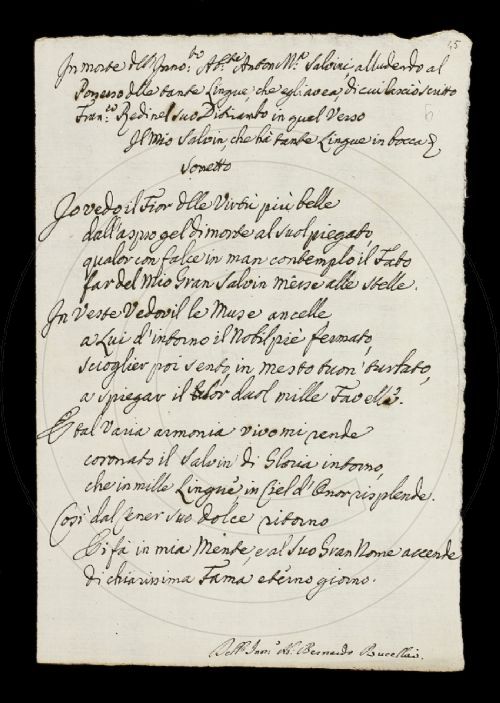 45
In morte dell' Innº. Ab.te Anton M.a Salvini, alludendo al
Possesso delle tante Lingue, che egli avea, di cui lasciò scritto
Fran.co Redi nel suo Ditirambo in quel Verso
6
Il Mio Salvin, che hà tante Lingue in bocca
Sonetto
Io vedo il Fior delle Virtù più belle
dall'aspro gel di morte al suol piegato,
qualor con falce in man contemplo il Fato
far del Mio Gran Salvin messe alle stelle.
In Veste Vedovil le Muse ancelle
a Lui d'intorno il Nobil piè fermato,
scioglier poi sento in mesto tuon turbato,
a spiegar il lor duol mille Favelle.
E tal Varia armonia vivo mi rende
coronato il Salvin di Gloria intorno,
che in mille Lingue in Ciel d'Onor risplende.
Così dal Cener suo dolce ritorno
Ei fà in mia Mente, e al Suo Gran Nome accende
di chiarissima Fama eterno giorno.
Dell' Bernardo Rucellai.